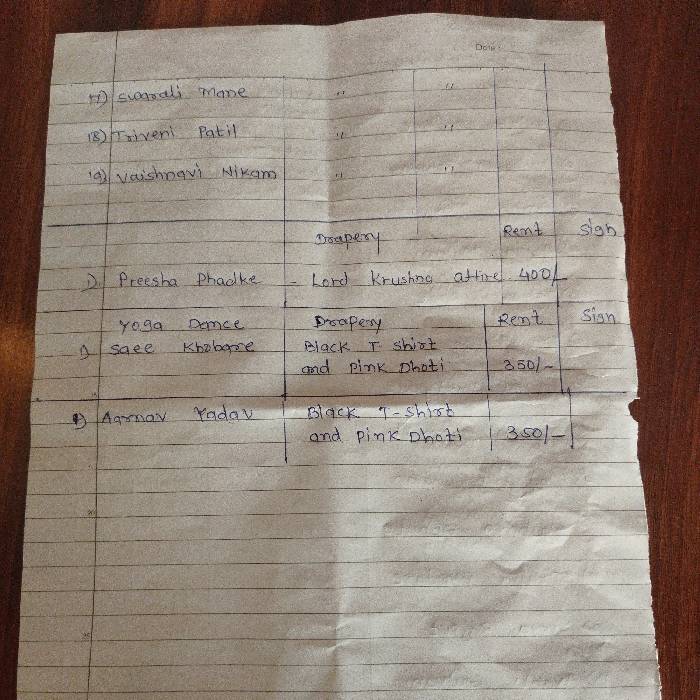 Date:
17) Swarali Mane " "
18) Triveni Patil " "
19) Vaishnavi Nikam " "
Drapery Rent Sign
1) Preesha Phadke - Lord Krushna attire 400/-
Yoga Dance Drapery Rent Sign
1) Saee Khobare Black T shirt
and Pink Dhoti 350/-
2) Aarnav Yadav Black T-Shirt
and Pink Dhoti 350/-
20
25